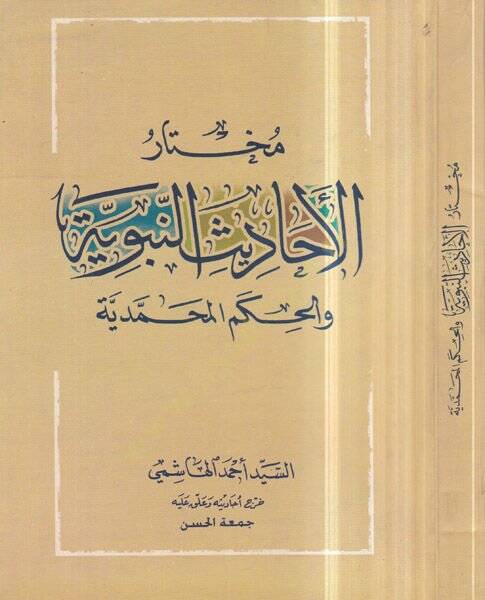 مُختارُ
الأحَاديثِ النَّبَويَّة
وَالحِكَم المحَمَّديَّة
السَّيِّد أحْمَد الهَاشِمي
خرّج أحاديثه وَعَلّق عَليه
جمعة الحسن
مُختارُ الأحَاديثِ النَّبَويَّة وَالحِكَم المحَمَّديَّة